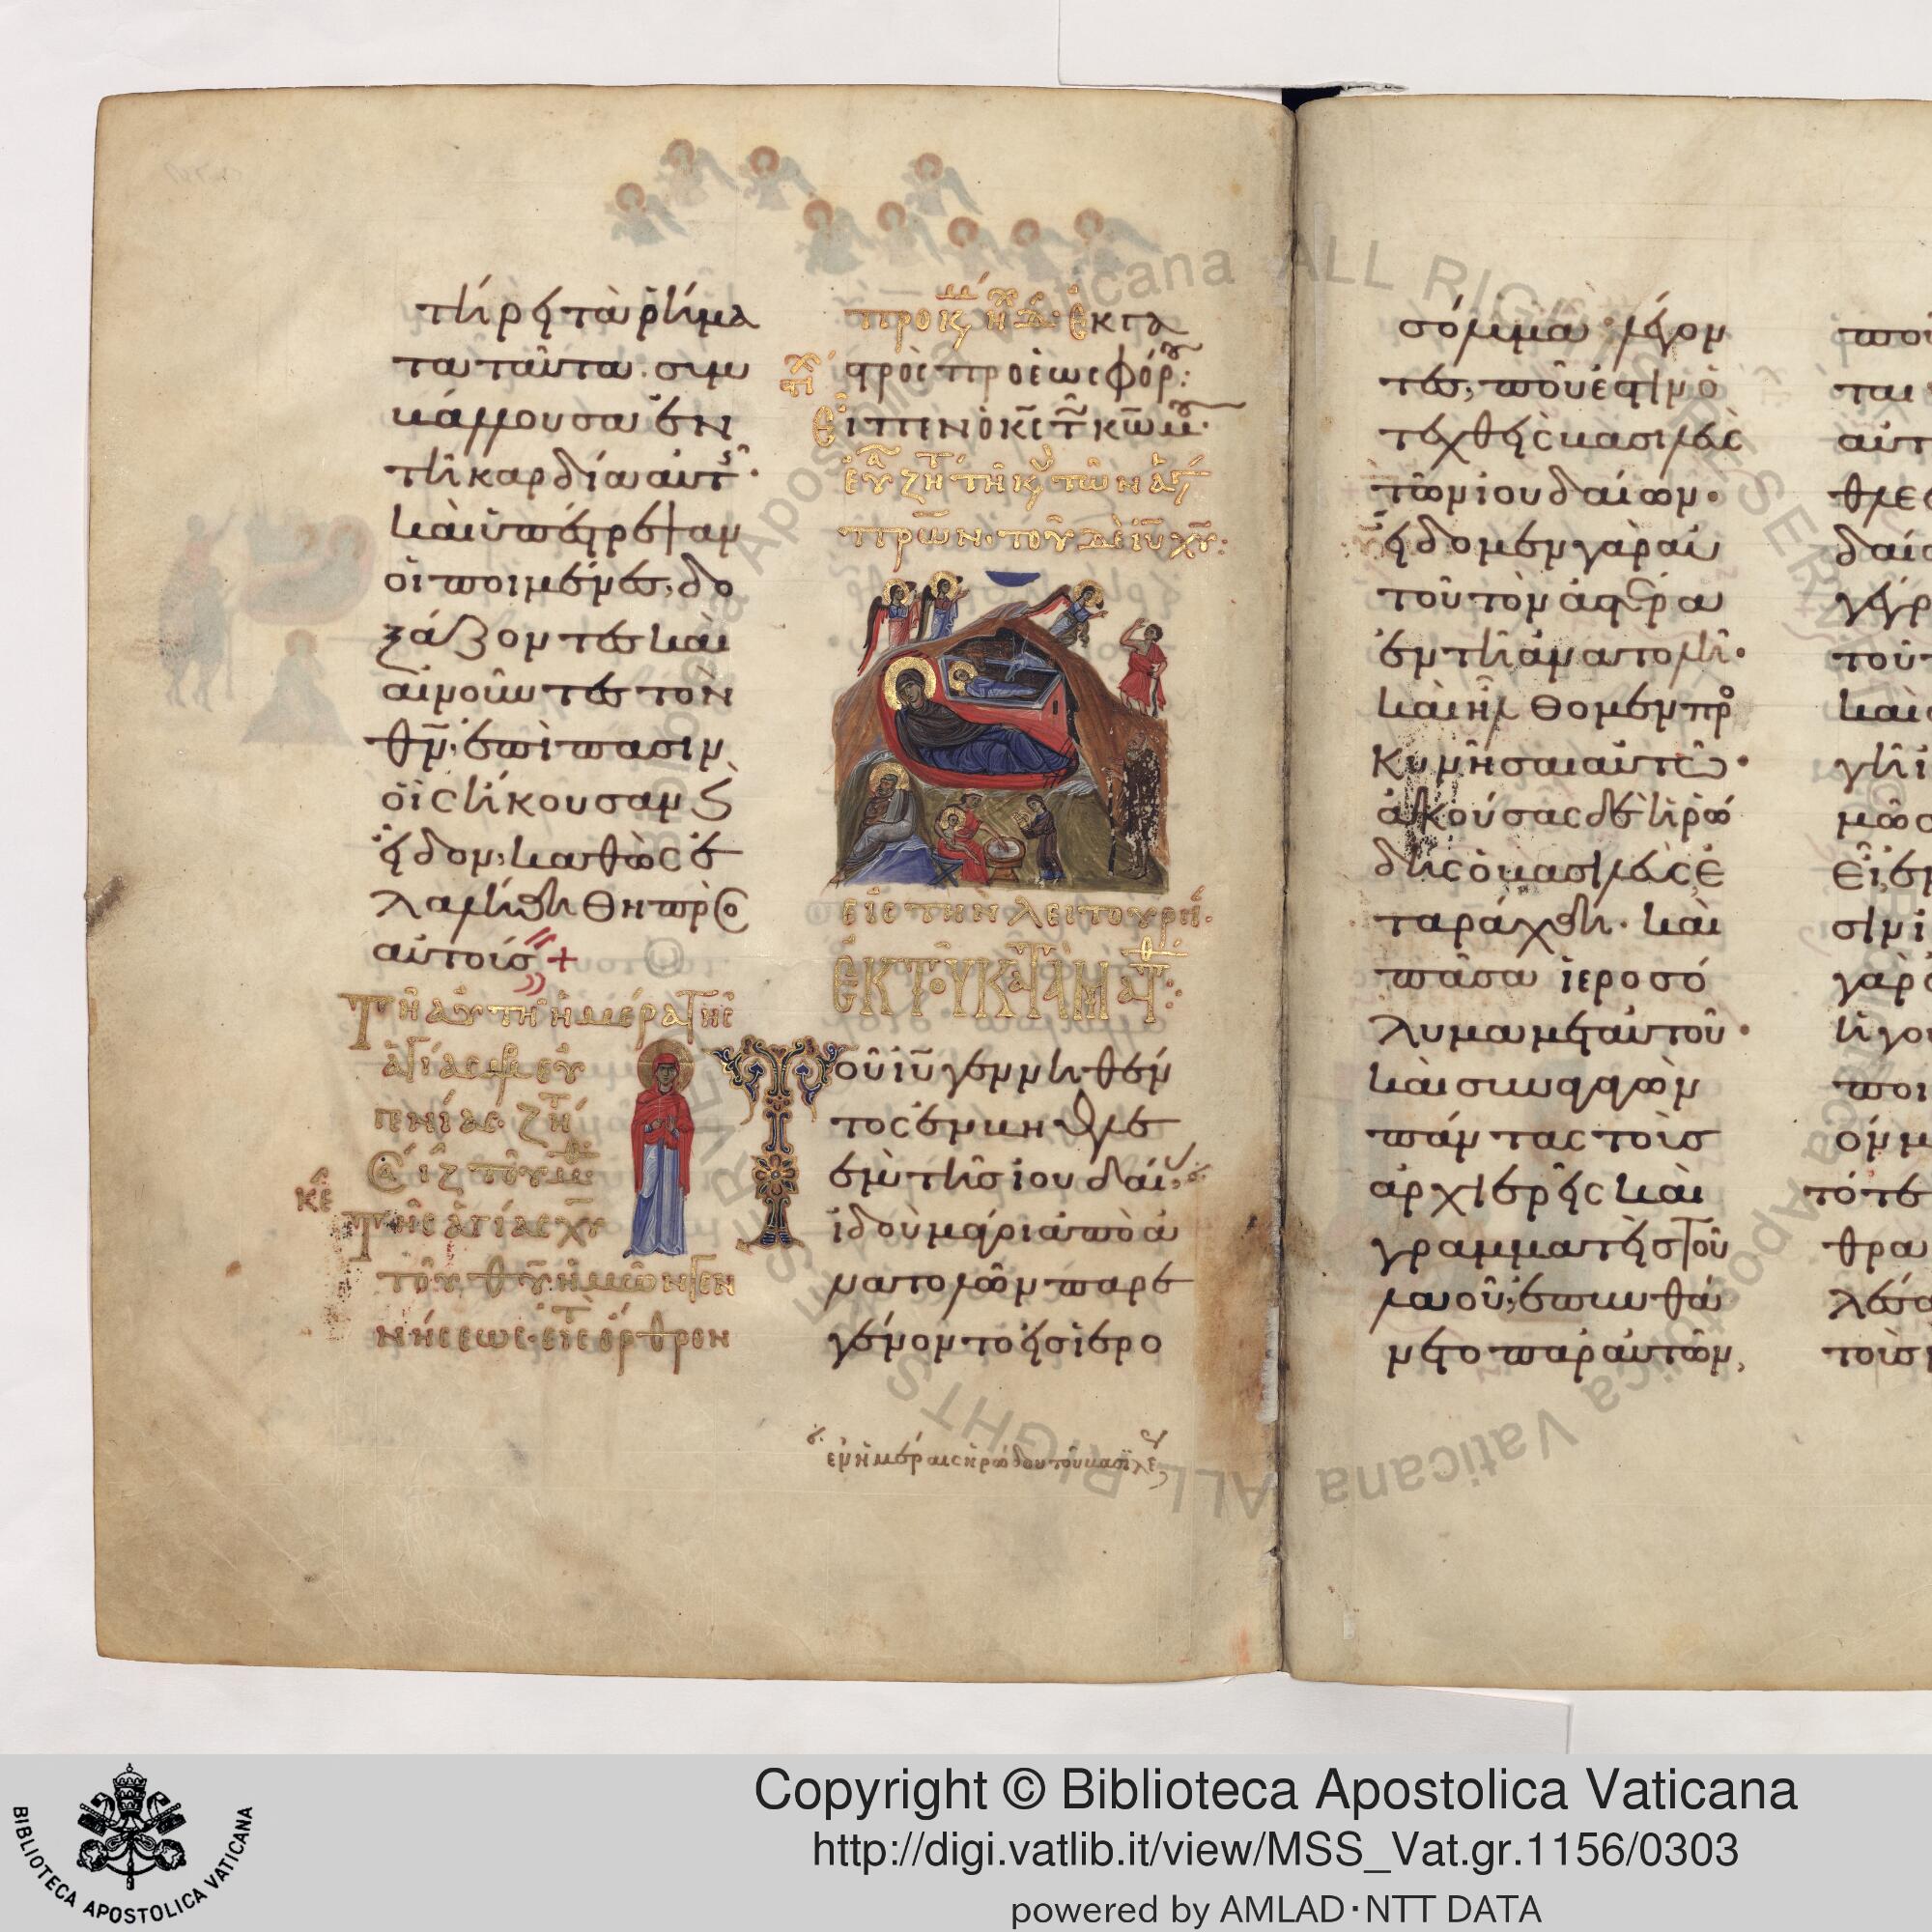 τήρει τὰ ῥήμα
τα ταῦτα. συμ
βάλλουσα ἐν
τῆ καρδία αὐτῆς.
καὶ ὑπέστρεψαν
οἱ ποιμένες, δο
ξάζοντες καὶ
αἰνοῦντες τὸν
θν̄, ἐπὶ πᾶσιν
οἷς ἤκουσαν κ
εἶδον, καθὼς ἐ
λαλήθη πρὸς
αὐτούς +
Τῆ αὐτῆ ἡμέρα τῆς
ἁγίας μρ εὐ
γενίας. ζητ
κε
τῆς ἁγίας χυ
τοῦ θυ ἡμῶν γεν
νήσεως. εἰς τ ὄρθρον
ἐκ γα
στρὸς πρὸ ἑωσφόρου:
Εἶπεν ὁ κς τῶ κω μου.
ζητ κυ τῶν ἁγ
πρων. τοῦ δὲ ιυ χυ:
εἰς τὴν λειτουργ.
ἐκ τοῦ κατὰ Ματθ:
Τοῦ ιυ γεννηθέν
τος ἐν βηθλεὲμ
τῆς ἰουδαίας
ἰδοὺ μάγοι ἀπὸ ἀ
νατολῶν παρε
γένοντο εἰς ἱερο
ἐν ἡμέραις ἡρώδου τοῦ βασιλέως
σόλυμα λέγον
τες, ποῦ ἐστιν ὁ
τεχθεὶς βασιλεὺς
τῶν ἰουδαίων.
εἴδομεν γὰρ αὐ
τοῦ τὸν ἀστέρα
ἐν τῆ ἀνατολῆ.
καὶ ἤλθομεν προσ
κυνῆσαι αὐτῶ.
ἀκούσας δὲ ἡρώ
δης ὁ βασιλεὺς ἐ
ταράχθη. καὶ
πᾶσα ἱεροσό
λυμα μετ αὐτοῦ.
καὶ συναγαγὼν
πάντας τοὺς
ἀρχιερεῖς καὶ
γραμματεῖς τοῦ
λαοῦ, ἐπυνθά
νετο παρ αὐτῶν,
ποῦ
ται
αὐτ
θλεὲ
δαί
γέγρ
τοῦ
καὶ
γῆ ἰ
μῶς
εἶ ἐν
σιν ἰ
γὰρ
ἡγο
ποι
τότε
θρα
τοὺς
Copyright © Biblioteca Apostolica Vaticana
http://digi.vatlib.it/view/MSS_Vat.gr.1156/0303
powered by AMLAD·NTT DATA
BIBLIOTECA APOSTOLICA VATICANA